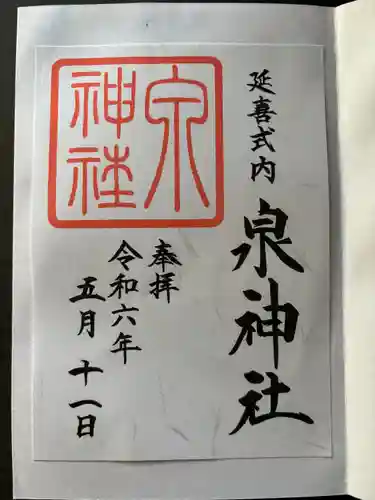 延喜式内
泉神社
奉拝
令和六年
五月十一日
泉
神社